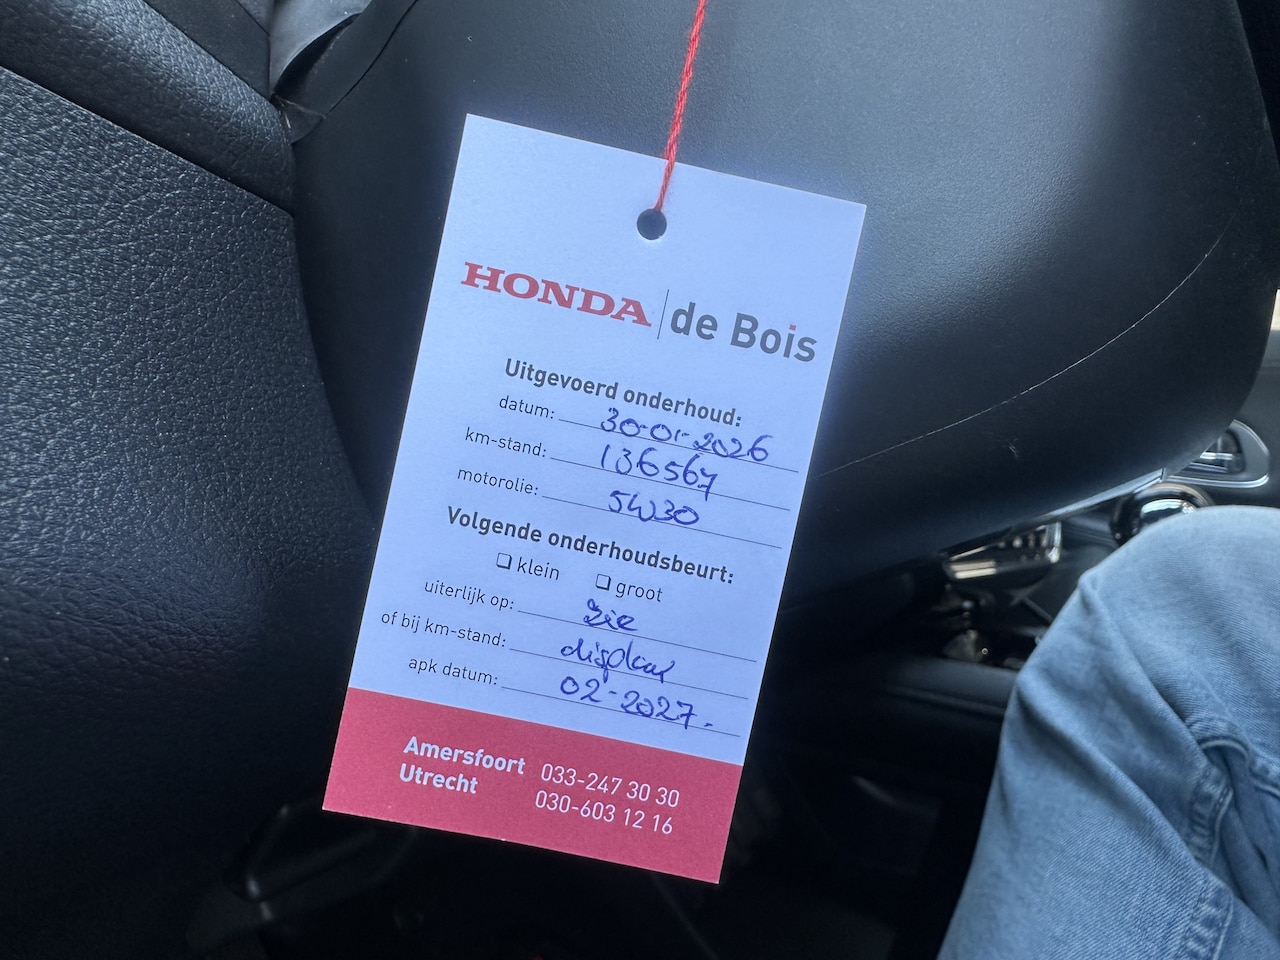 HONDA | de Bois
Uitgevoerd onderhoud:
datum: 30-01-2026
km-stand: 136567
motorolie: 5W30
Volgende onderhoudsbeurt:
❏ klein ❏ groot
uiterlijk op: zie
of bij km-stand: display
apk datum: 02-2027.
Amersfoort 033-247 30 30
Utrecht 030-603 12 16